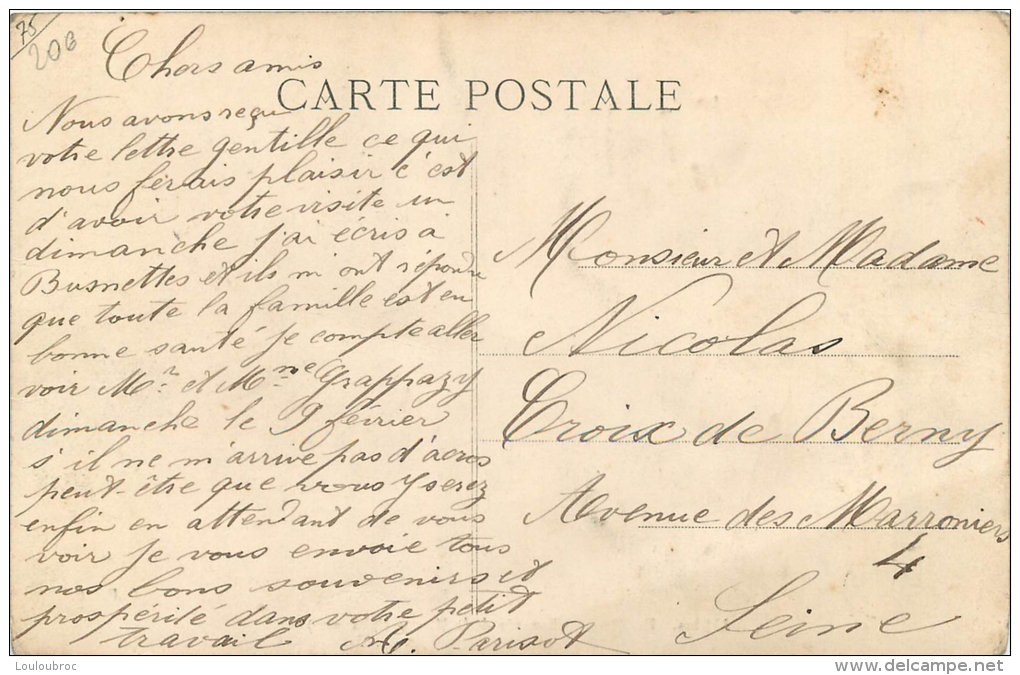 75
20€
Chers amis
CARTE POSTALE
Nous avons reçu
votre lettre gentille ce qui
nous ferais plaisir c'est
d'avoir votre visite un
dimanche j'ai écris à
Busnettes et ils m'ont répondu
que toute la famille est en
bonne santé je compte aller
voir Mr et Mme Grappazy
dimanche le 9 février
s'il ne m'arrive pas d'acros
peut-être que vous y serez
enfin en attendant de vous
voir je vous envoie tous
nos bons souvenirs et
prospérité dans votre petit
travail M. Parisot
Monsieur et Madame
Nicolas
Croix de Berny
Avenue des Marroniers
4
Seine
Louloubroc
delcampe.net